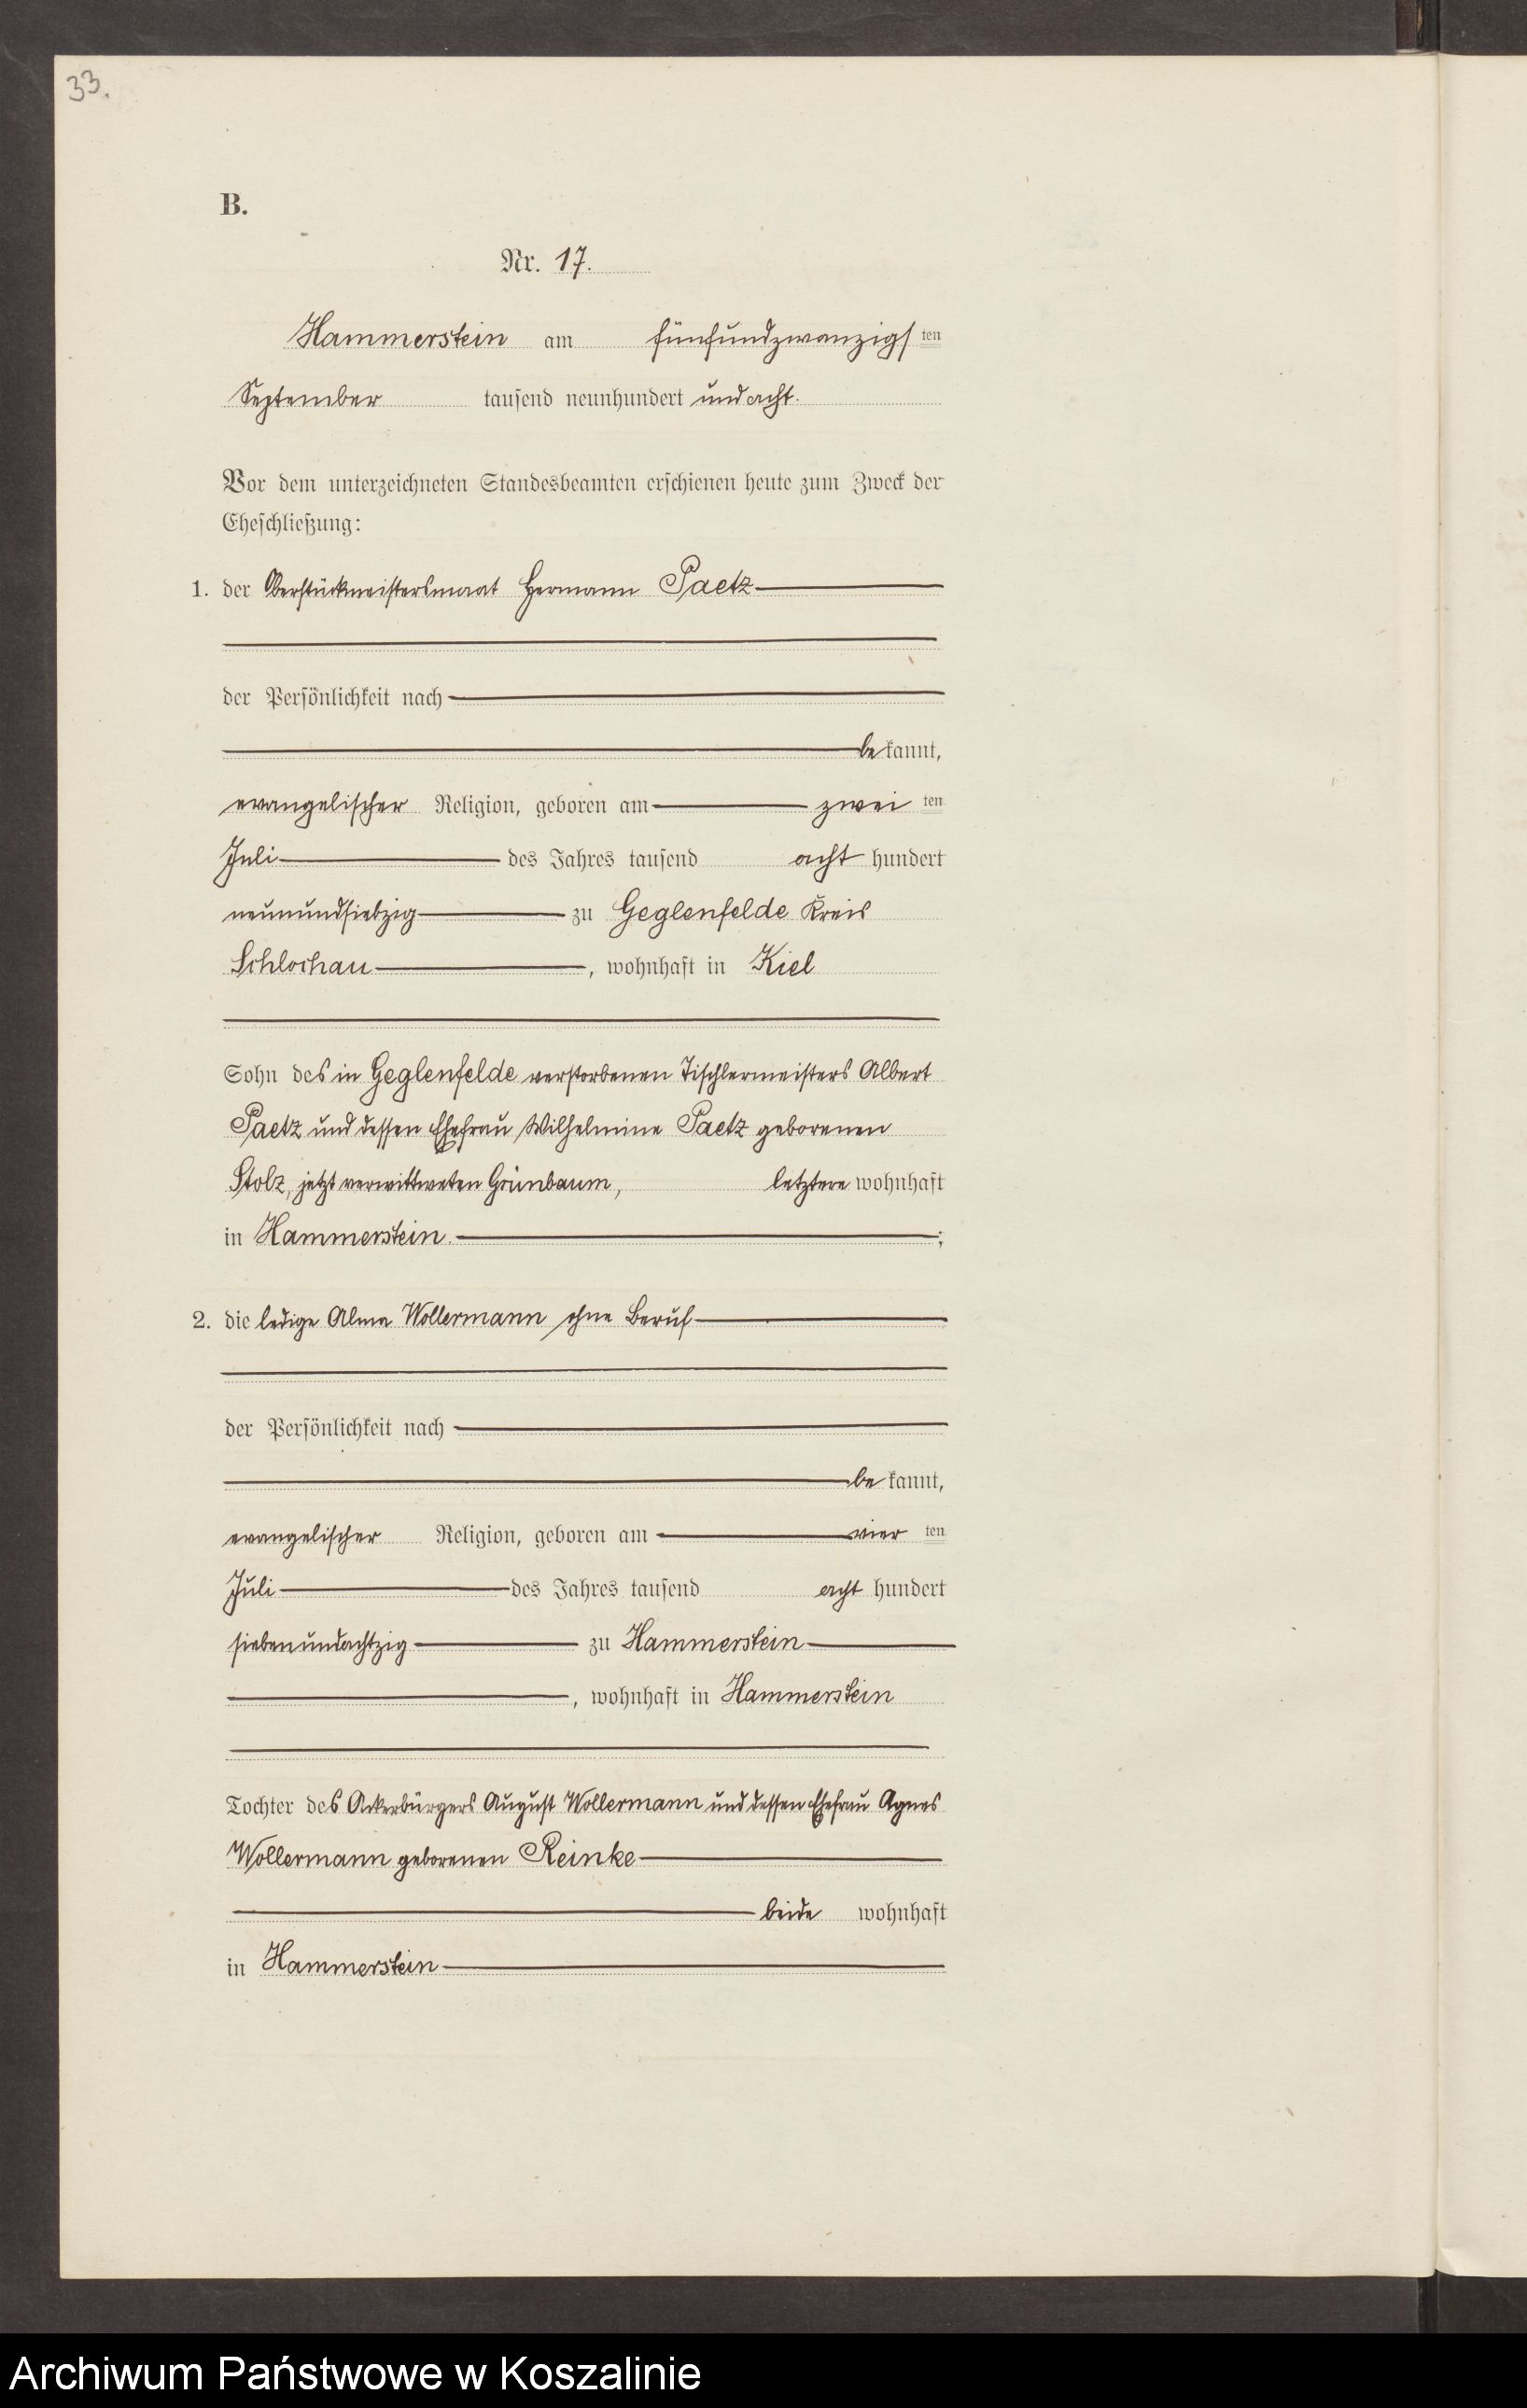 33.
B.
Nr. 17.
Hammerstein am fünfundzwanzigsten
September tausend neunhundert und acht.
Vor dem unterzeichneten Standesbeamten erschienen heute zum Zweck der
Eheschließung:
1. der Oberstückmeistersmaat Hermann Paetz
der Persönlichkeit nach
bekannt,
evangelischer Religion, geboren am zweiten
Juli des Jahres tausend acht hundert
neunundsiebzig zu Geglenfelde Kreis
Schlochau, wohnhaft in Kiel
Sohn des in Geglenfelde verstorbenen Tischlermeisters Albert
Paetz und dessen Ehefrau Wilhelmine Paetz geborenen
Stolz, jetzt verwittweten Grünbaum, letztere wohnhaft
in Hammerstein.;
2. die ledige Alma Wollermann ohne Beruf
der Persönlichkeit nach
bekannt,
evangelischer Religion, geboren am vierten
Juli des Jahres tausend acht hundert
siebenundachtzig zu Hammerstein
, wohnhaft in Hammerstein
Tochter des Ackerbürgers August Wollermann und dessen Ehefrau Agnes
Wollermann geborenen Reinke
beide wohnhaft
in Hammerstein
Archiwum Państwowe w Koszalinie